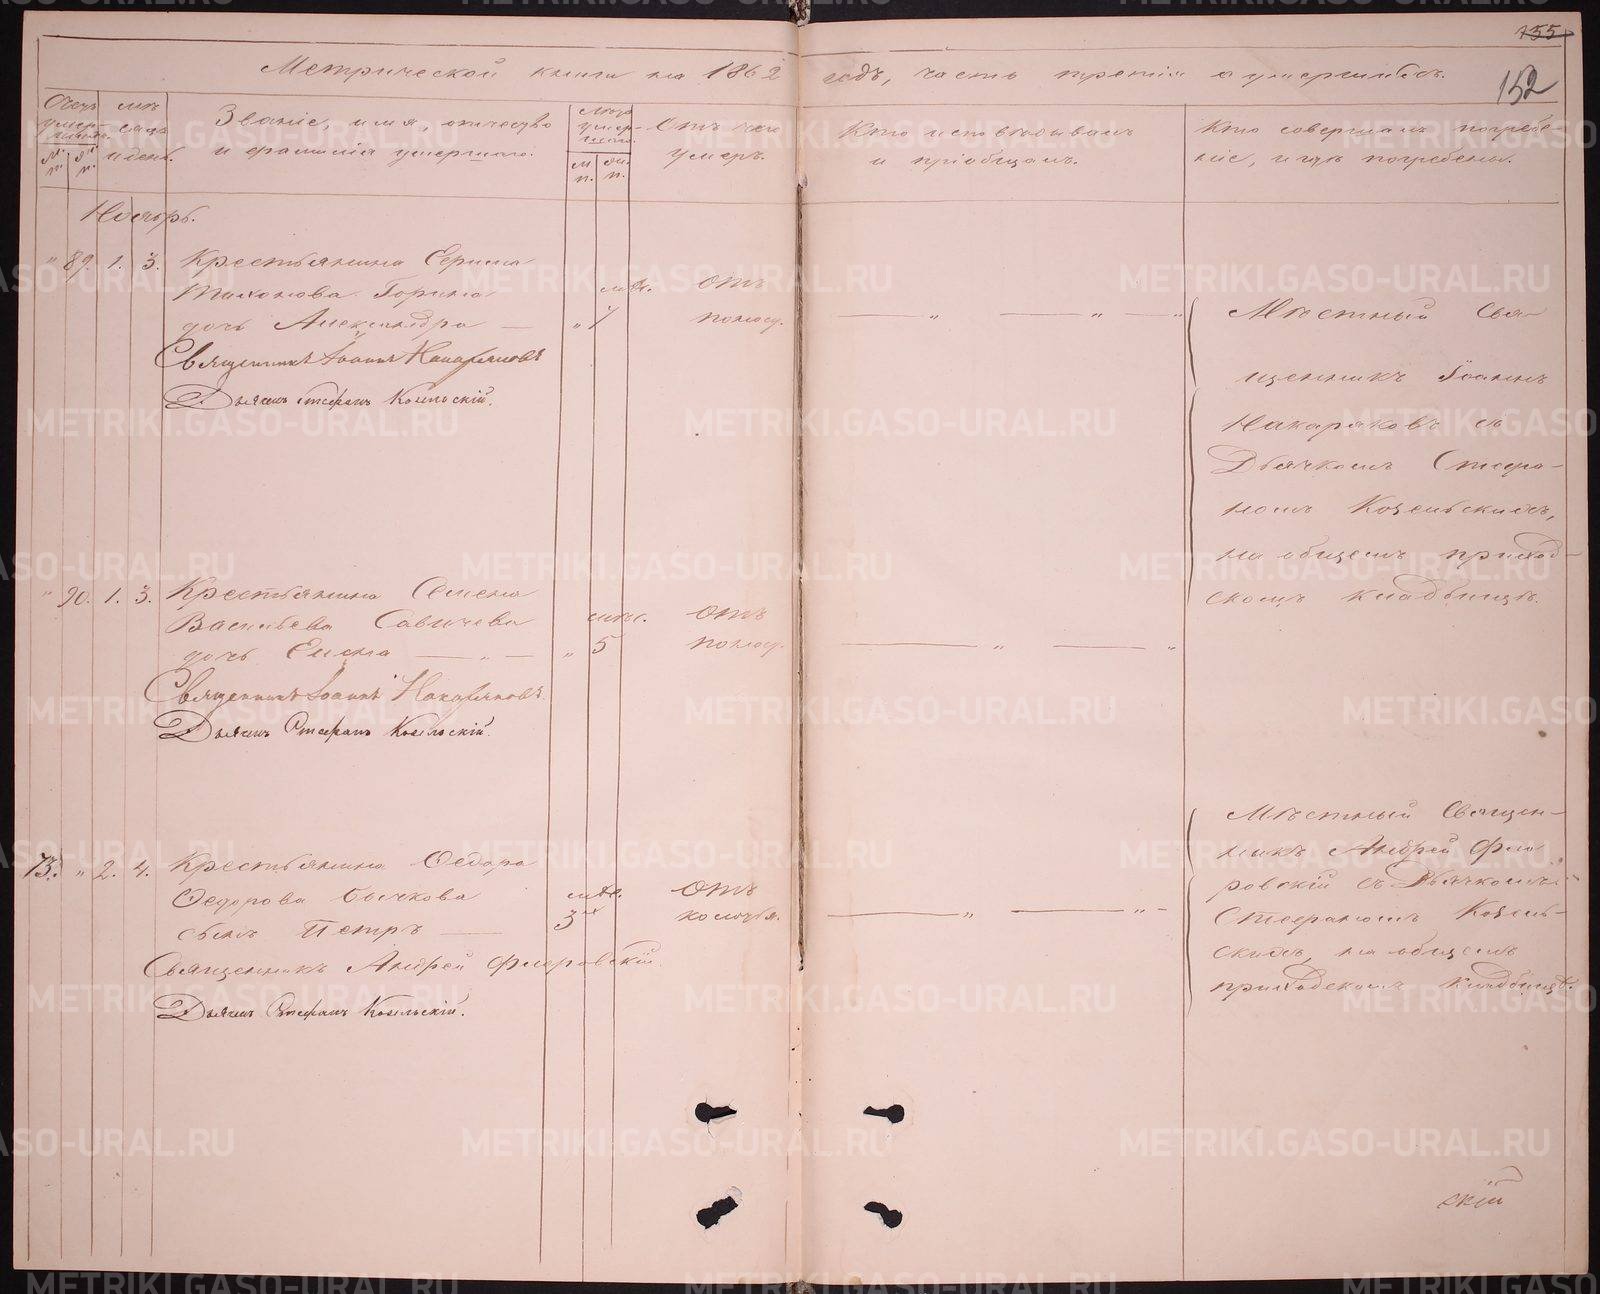 155
152
Метрической книги на 1862 годъ, часть третія о умершихъ.
Счетъ умер-шихъ.
м. п. ж. п.
мѣ-сяцъ и день.
Званіе, имя, отчество
и фамилія умершаго.
Лѣта умер-шаго.
м. п. ж. п.
Отъ чего
умеръ.
Кто исповѣдывалъ
и пріобщалъ.
Кто совершалъ погребе-
ніе, и гдѣ погребены.
Ноябрь.
" 89. 1. 3. Крестьянина Ефима
Тихонова Горина мѣс. Отъ
дочь Александра — " 7 поносу.
Священникъ Іоаннъ Накаряковъ
Дьячекъ Стефанъ Козельскій.
Мѣстный Свя-
щенникъ Іоаннъ
Накаряковъ съ
Дьячкомъ Стефа-
номъ Козельскимъ,
на общемъ приход-
скомъ кладбищѣ.
" 90. 1. 3. Крестьянина Семена
Васильева Савичева мѣс. Отъ
дочь Елена — " — " 5 поносу.
Священникъ Іоаннъ Накаряковъ.
Дьячекъ Стефанъ Козельскій.
73. " 2. 4. Крестьянина Ѳедора
Ѳедорова Бычкова мѣс. Отъ
сынъ Петръ — 3хъ колотья.
Священникъ Андрей Флеровскій.
Дьячекъ Стефанъ Козельскій.
Мѣстный Священ-
никъ Андрей Фле-
ровскій съ Дьячкомъ
Стефаномъ Козель-
скимъ, на общемъ
приходскомъ кладбищѣ.
скій